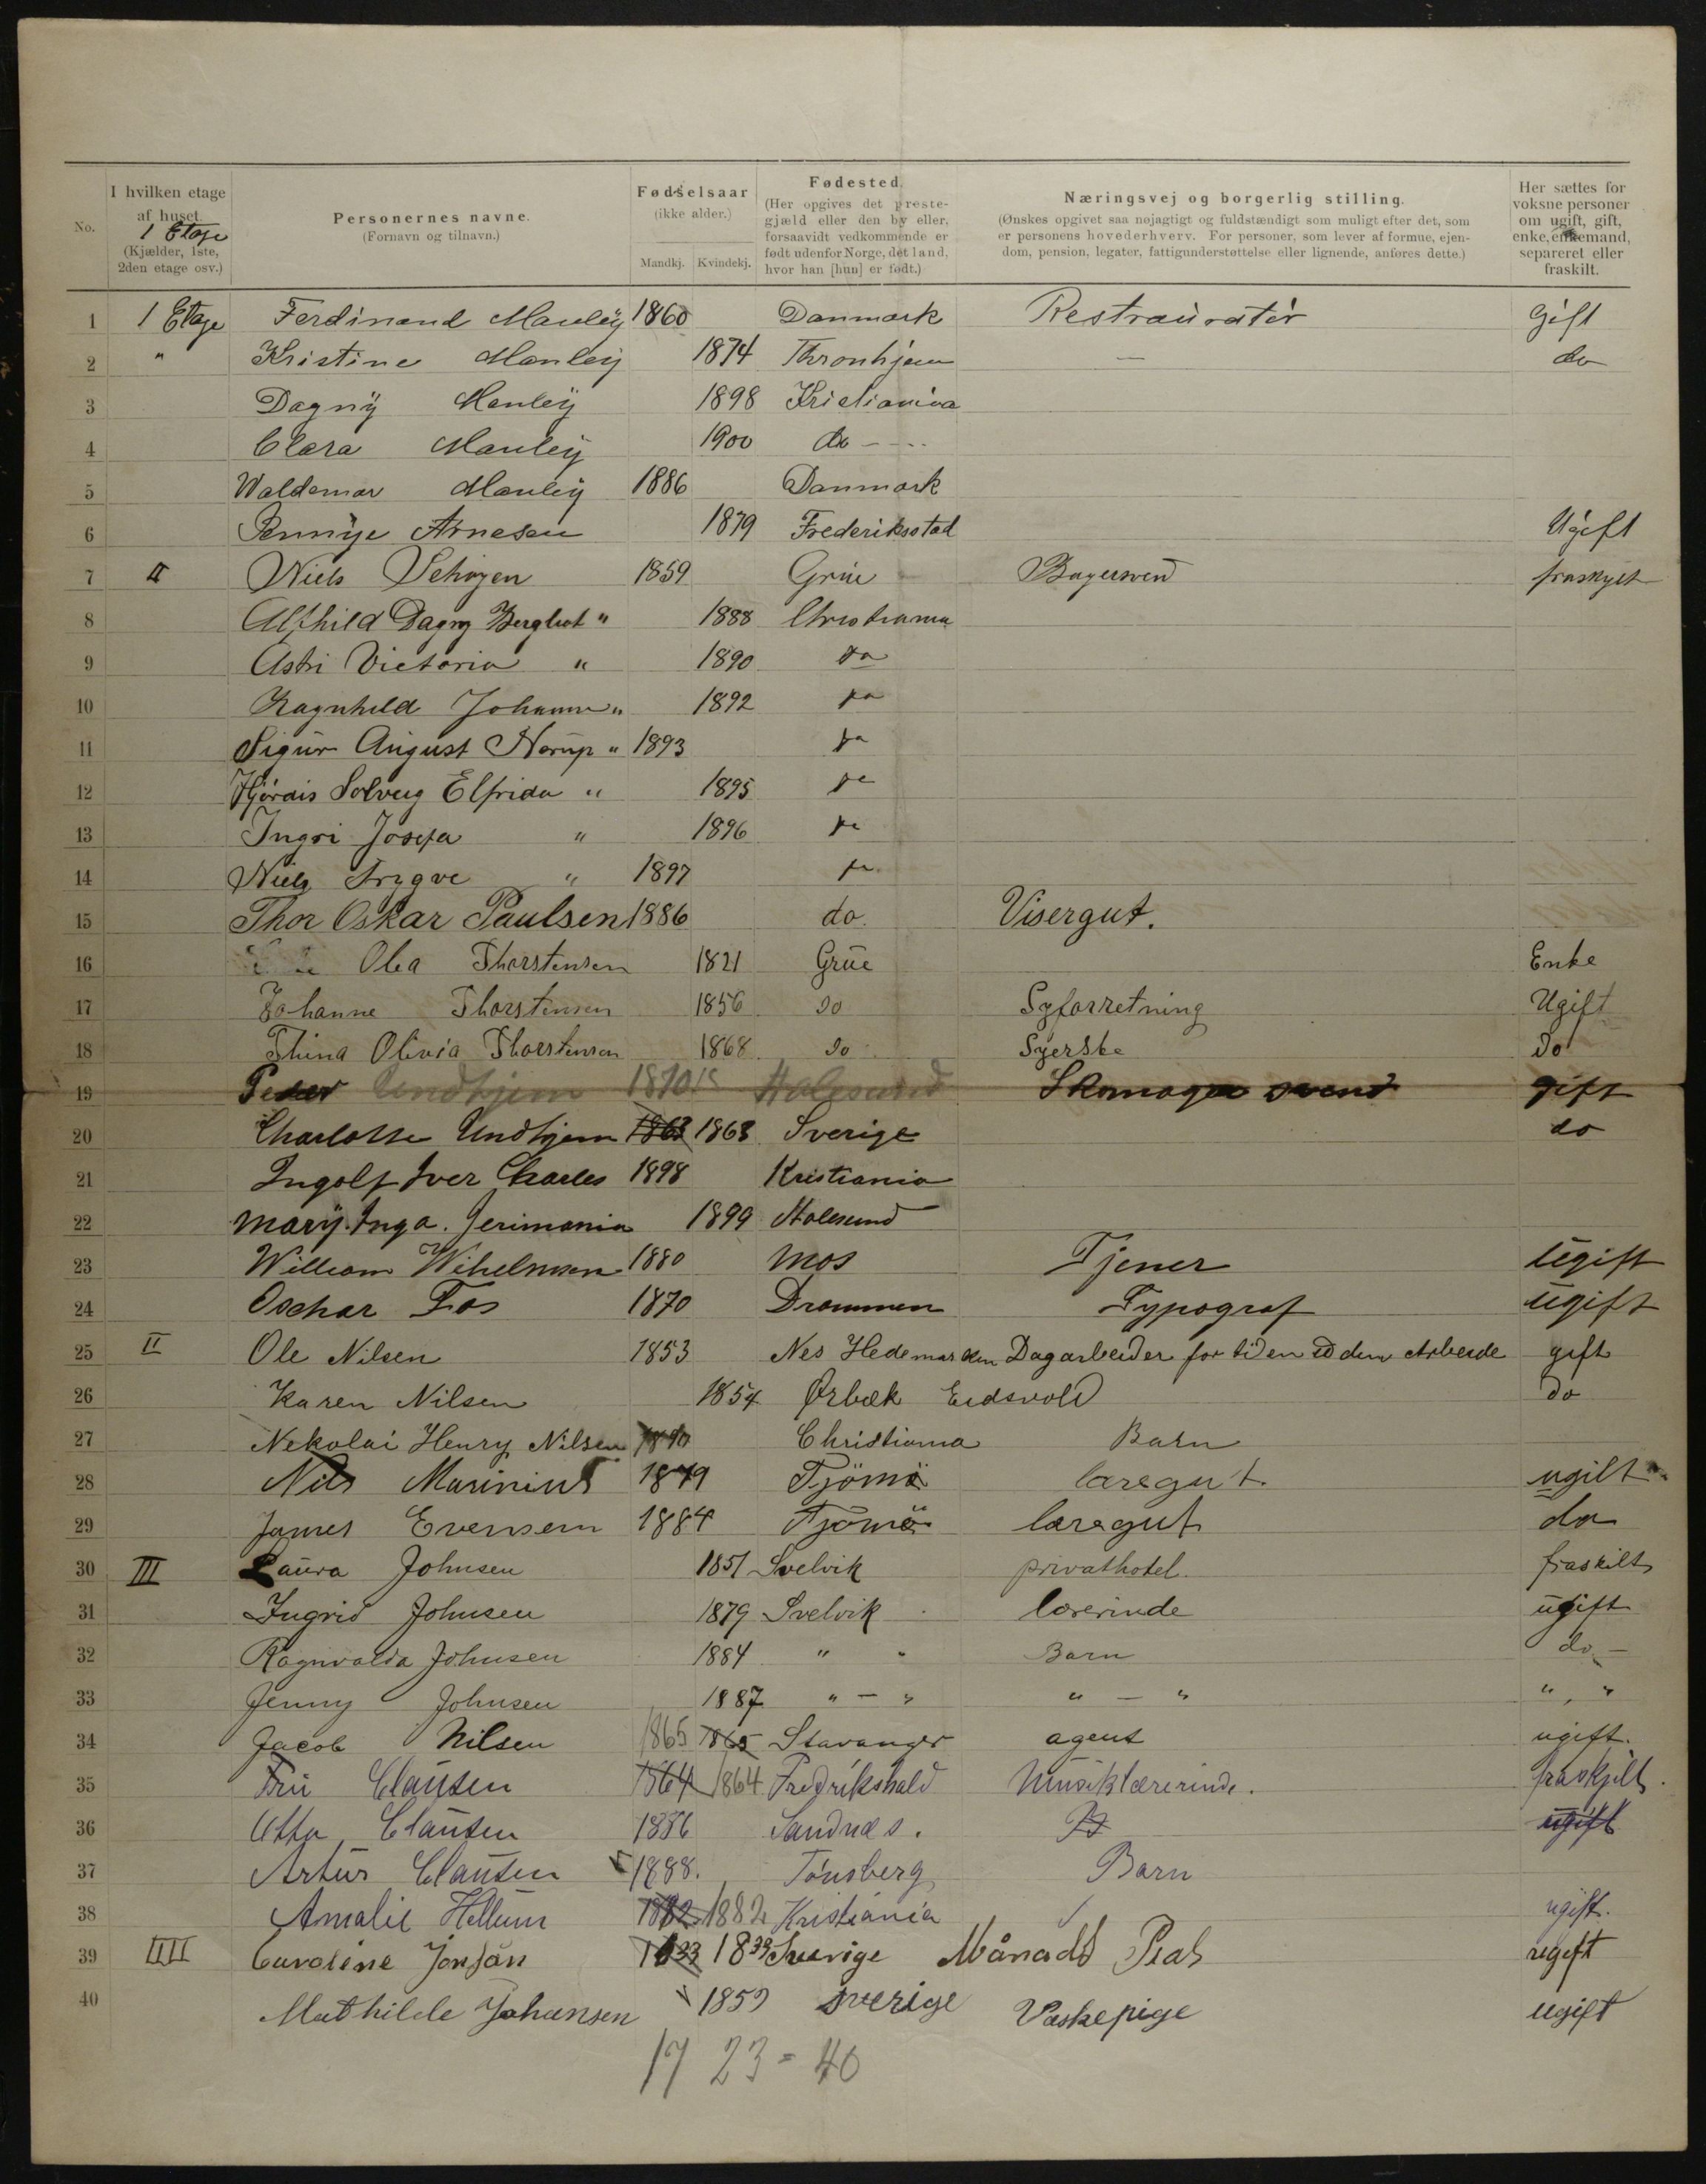 No. | I hvilken etage af huset. 1 Etage (Kjælder, 1ste, 2den etage osv.) | Personernes navne. (Fornavn og tilnavn.) | Fødselsaar (ikke alder.) Mandkj. Kvindekj. | Fødested. (Her opgives det prestegjæld eller den by eller, forsaavidt vedkommende er født udenfor Norge, det land, hvor han [hun] er født.) | Næringsvej og borgerlig stilling. (Ønskes opgivet saa nøjagtigt og fuldstændigt som muligt efter det, som er personens hovederhverv. For personer, som lever af formue, ejendom, pension, legater, fattigunderstøttelse eller lignende, anføres dette.) | Her sættes for voksne personer om ugift, gift, enke, enkemand, separeret eller fraskilt.
1 1 Etage Ferdinand Manley 1860 Danmark Restrauratør gift
2 " Kristine Manley 1874 Thronhjem — do
3 Dagny Manley 1898 Kristiania
4 Clara Manley 1900 do - - - -
5 Waldemar Manley 1886 Danmark
6 Arnesen 1879 Frederiksstad Ugift
7 II Niels 1859 Grue Bagersvend fraskylt
8 Alfhild Dagny Bergliot " 1888 Christiania
9 Astri Victoria " 1890 da
10 Ragnhild Johanne " 1892 da
11 Sigur August Nerup " 1893 da
12 Hjördis Solveig Elfrida " 1895 da
13 Ingri Josefa " 1896 da
14 Niels Trygve " 1897 da
15 Thor Oskar Paulsen 1886 do. Visergut.
16 Olea Thorstensen 1821 Grue Enke
17 Johanne Thorstensen 1856 do Syforretning Ugift
18 Thina Olivia Thorstensen 1868 do Syerske do
19 Peder Undhjem 1870 Aalesund Skomager svend gift
20 Charlotte Undhjem 1863 1863 Sverige do
21 Ingolf Iver Charles 1898 Kristiania
22 Mary. Inga. Jerimania 1899 Aalesund
23 William Wihelmsen 1880 Mos Tjener ugift
24 Oschar Fos 1870 Drammen Typograf ugift
25 II Ole Nilsen 1853 Nes Hedemarken Dagarbeider for tiden uden Arbeide gift
26 Karen Nilsen 1854 Ørbæk Eidsvold do
27 Nekolai Henry Nilsen 1890 Christiania Barn
28 Nils Marinius 1879 Tjömö læregut. ugift
29 James Evensen 1884 Tjömö læregut do
30 III Laura Johnsen 1851 Svelvik privathotel. fraskilt
31 Ingrid Johnsen 1879 Svelvik lærerinde ugift
32 Ragnvalda Johnsen 1884 " " Barn do —
33 Jenny Johnsen 1887 " — " " — " " , "
34 Jacob Nilsen 1865 1865 Stavanger agent ugift.
35 Fru Clausen 1864 1864 Fredrikshald Musiklærerinde. fraskjilt.
36 Otto Clausen 1886 Sandnæs. ugift
37 Artur Clausen 1888. Tönsberg Barn
38 Amalie Hellum 1882 1882 Kristiania ugift.
39 IIII Caroline Jonsån 1833 1833 Sverige Månads Pias ugift
40 Mathilde Johansen 1859 Sverige Vaskepige ugift
17 23 = 40